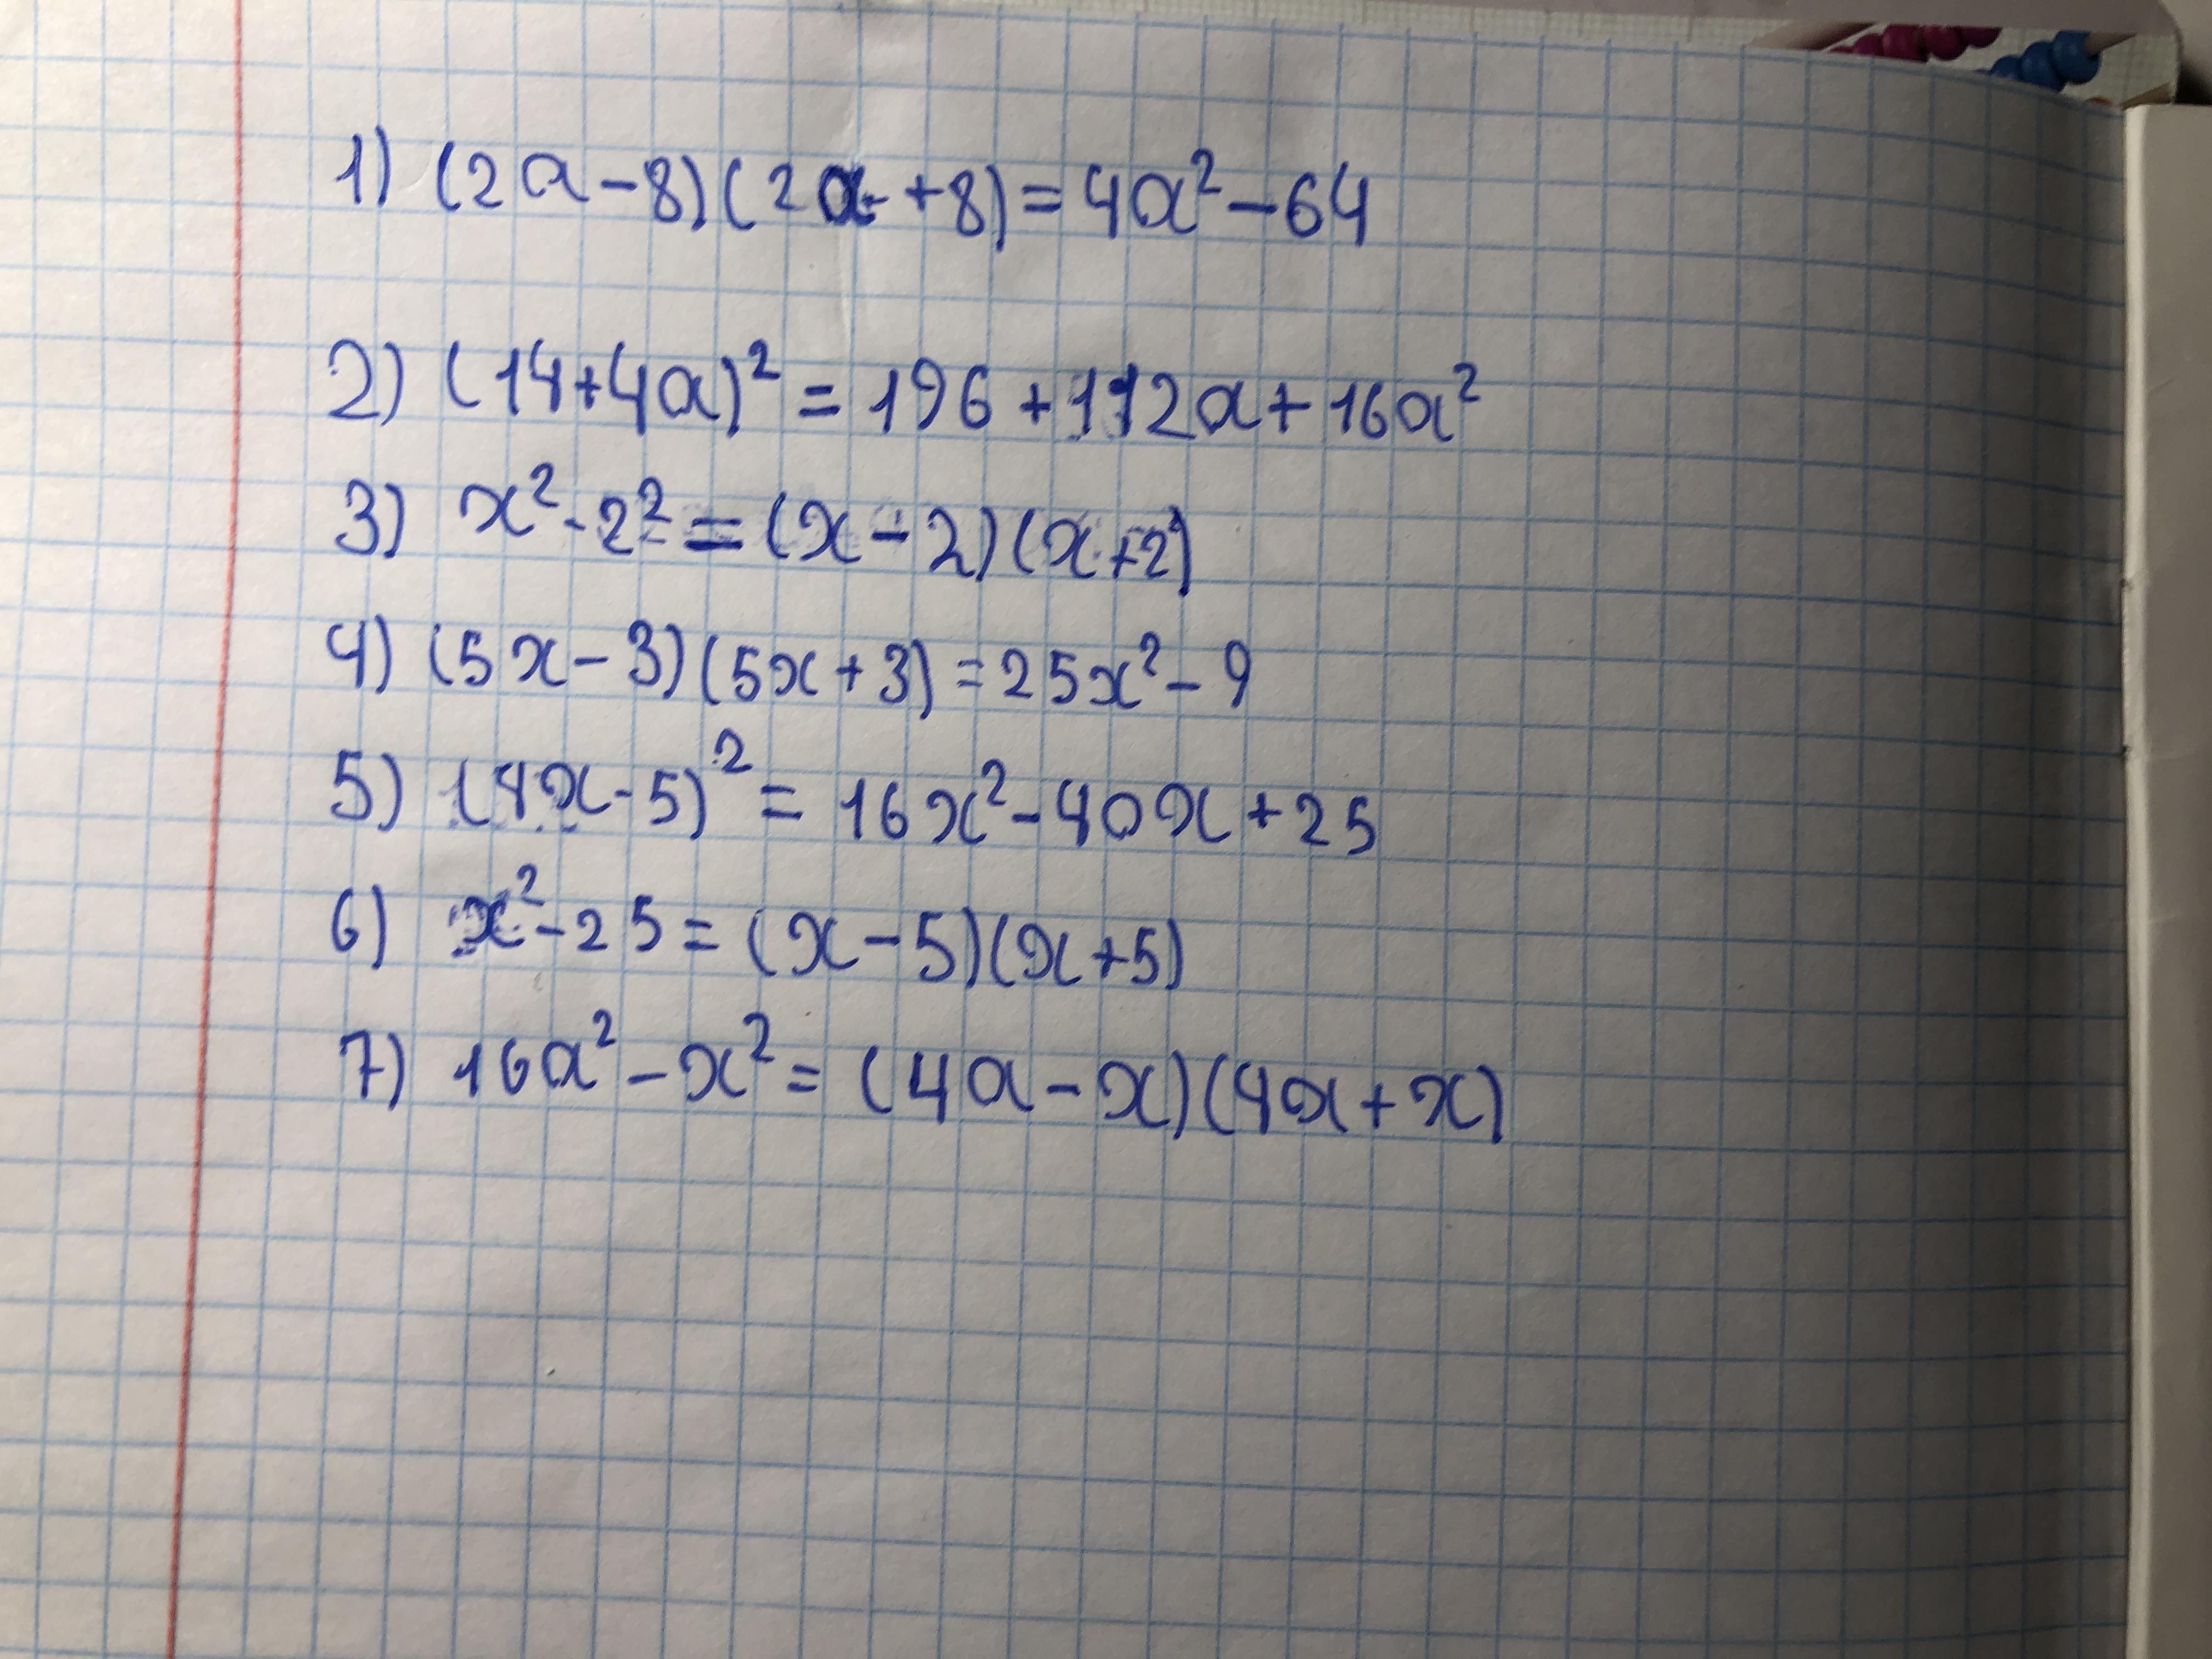 1) (2a-8)(2a+8)=4a²-64
2) (14+4a)²=196+112a+16a²
3) x²-2²=(x-2)(x+2)
4) (5x-3)(5x+3)=25x²-9
5) (4x-5)²=16x²-40x+25
6) x²-25=(x-5)(x+5)
7) 16a²-x²=(4a-x)(4a+x)